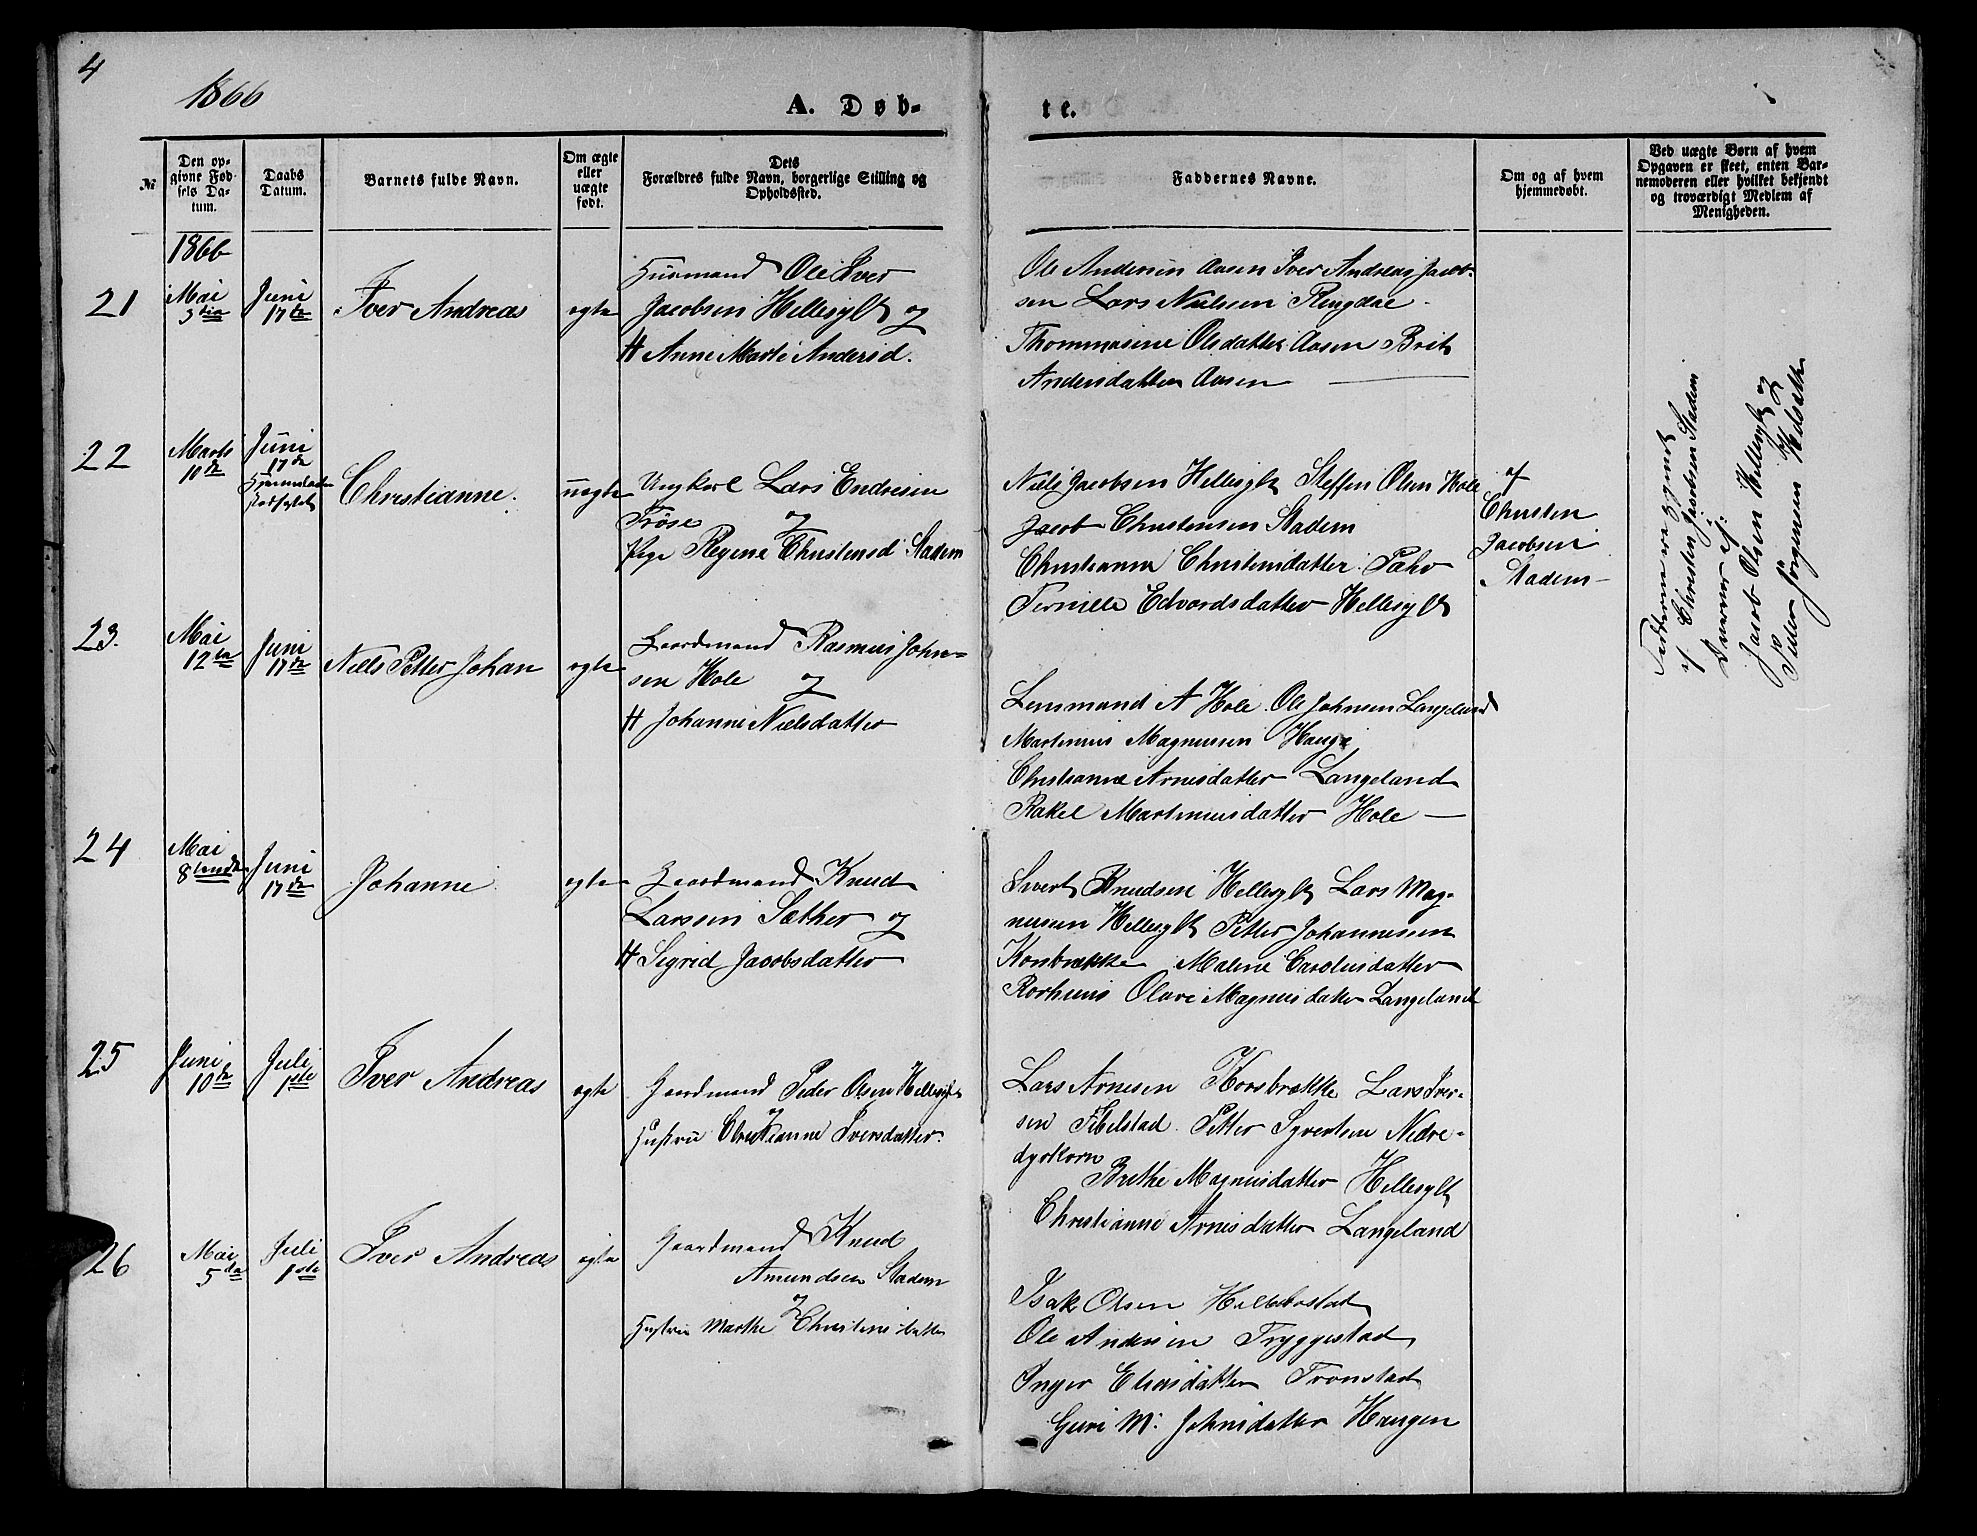 4
1866
A. Døb-
te.
№
Den op-
givne Fød-
sels Da-
tum.
Daabs
Datum.
Barnets fulde Navn.
Om ægte
eller
uægte
født.
Dets
Forældres fulde Navn, borgerlige Stilling og
Opholdssted.
Faddernes Navne.
Om og af hvem
hjemmedøbt.
Ved uægte Børn af hvem
Opgaven er skeet, enten Bar-
nemoderen eller hvilket bekjendt
og troværdigt Medlem af
Menigheden.
1866
21
Mai
Juni
17de
Iver Andreas
ægte
Huusmand Ole Iver
Jacobsen Hellesylt og
H Anne Marte Andersd.
Ole Andersen Aasen Iver Andreas Jacob-
sen Lars Nielsen Ringdal
Thommasine Olsdatter Aasen Brit
Andersdatter Aasen
22
Marts
10de
Juni
17de
Christianne
uægte
Ungkarl Lars Endresen
og
Pige Regine Christensd Stadem
Niels Jacobsen Hellesylt Steffen Olsen Hole
Jacob Christensen Stadem
Christianne Christensdatter
Pernille Edvardsdatter Hellesylt
af
Christen
Jacobsen
Stadem
af Christen Jacobsen Stadem
Jacob Olsen Hellesylt og
Petter Jörgensen
23.
Mai
12te
Juni
17de
Niels Petter Johan
ægte
Gaardmand Rasmus John-
sen Hole og
H Johanne Nielsdatter
Lensmand A Hole Ole Johnsen Langeland
Martinus Magnussen Hauge
Christianne Arnesdatter Langeland
Rakel Martinusdatter Hole
24
Mai
8tende
Juni
17de
Johanne
ægte
Gaardmand Knud
Larssen Sæther og
H Sigrid Jacobsdatter
Sivert Knudsen Hellesylt Lars Mag-
nussen Hellesylt Petter Johannessen
Malene Carolusdatter
Rorhuus Olave Magnusdatter Langeland
25
Juni
10de
Juli
1ste
Iver Andreas
ægte
Gaardmand Peder Olsen Hellesylt
og
Hustru Christianne Iversdatter
Lars Arnesen Korsbrække Lars Iver-
sen Fibelstad Petter Syvertsen Nedre-
dyrkorn
Brethe Magnusdatter Hellesylt
Christianne Arnesdatter Langeland
26
Mai
5te
Juli
1ste
Iver Andreas
ægte
Gaardmand Knud
Amundsen Stadem
og
Hustru Marthe Christensdatter
Isak Olsen Hellebostad
Ole Andersen Tryggestad
Inger Eliasdatter Tronstad
Guri M. Johnsdatter Haugen